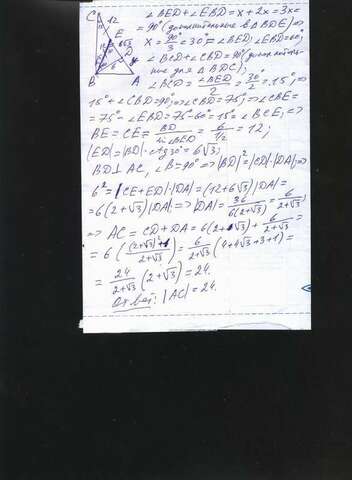 C
12
∠BED+∠EBD=x+2x=3x=
E
=90° (дополнительные в ΔBDE) ⇒
6√3
D
x = 90°/3 = 30° ⇒ ∠BED; ∠EBD=60°;
∠BCD+∠CBD=90°
B
A
для ΔBDC);
∠BCD = ∠BED/2 = 30/2 = 15° ⇒
15°+∠CBD=90° ⇒ ∠CBD=75° ⇒ ∠CBE=
=75°-∠EBD=75°-60°=15°=∠BCE; ⇒
BE=CE= BD/sin∠BED = 6/(1/2) = 12;
|ED|=|BD|·ctg30°=6√3;
BD⊥AC, ∠B=90° ⇒ |BD|²=|CD|·|DA| ⇒
6²=|CE+ED|·|DA|=(12+6√3)|DA|=
=6(2+√3)|DA| ⇒ |DA|= 36/(6(2+√3)) = 6/(2+√3)
⇒ AC=CD+DA=6(2+√3)+ 6/(2+√3) =
=6( ((2+√3)²+1)/(2+√3) )= 6/(2+√3) (4+4√3+3+1)=
= 24/(2+√3) (2+√3)=24.
Ответ: |AC|=24.